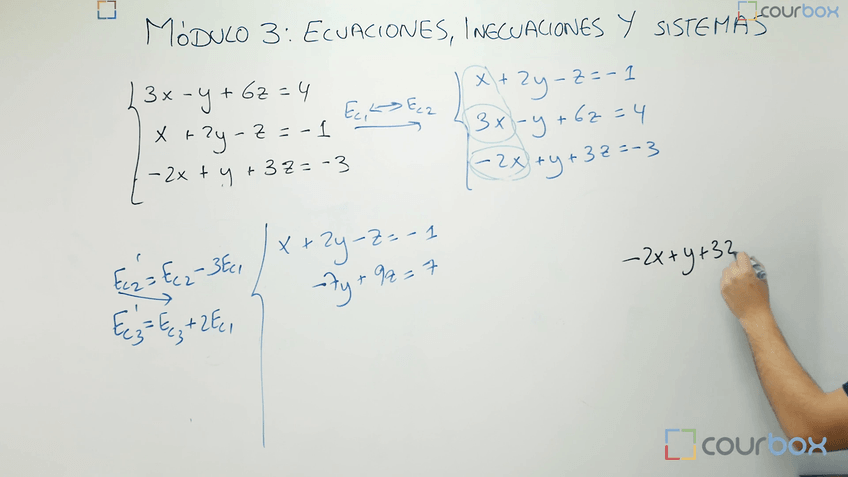 courbox
MÓDULO 3: ECUACIONES, INECUACIONES Y SISTEMAS
3x - y + 6z = 4
x + 2y - z = -1
-2x + y + 3z = -3
Ec1 ↔ Ec2
x + 2y - z = -1
3x - y + 6z = 4
-2x + y + 3z = -3
Ec2' = Ec2 - 3Ec1
Ec3' = Ec3 + 2Ec1
x + 2y - z = -1
-7y + 9z = 7
-2x + y + 3z
courbox